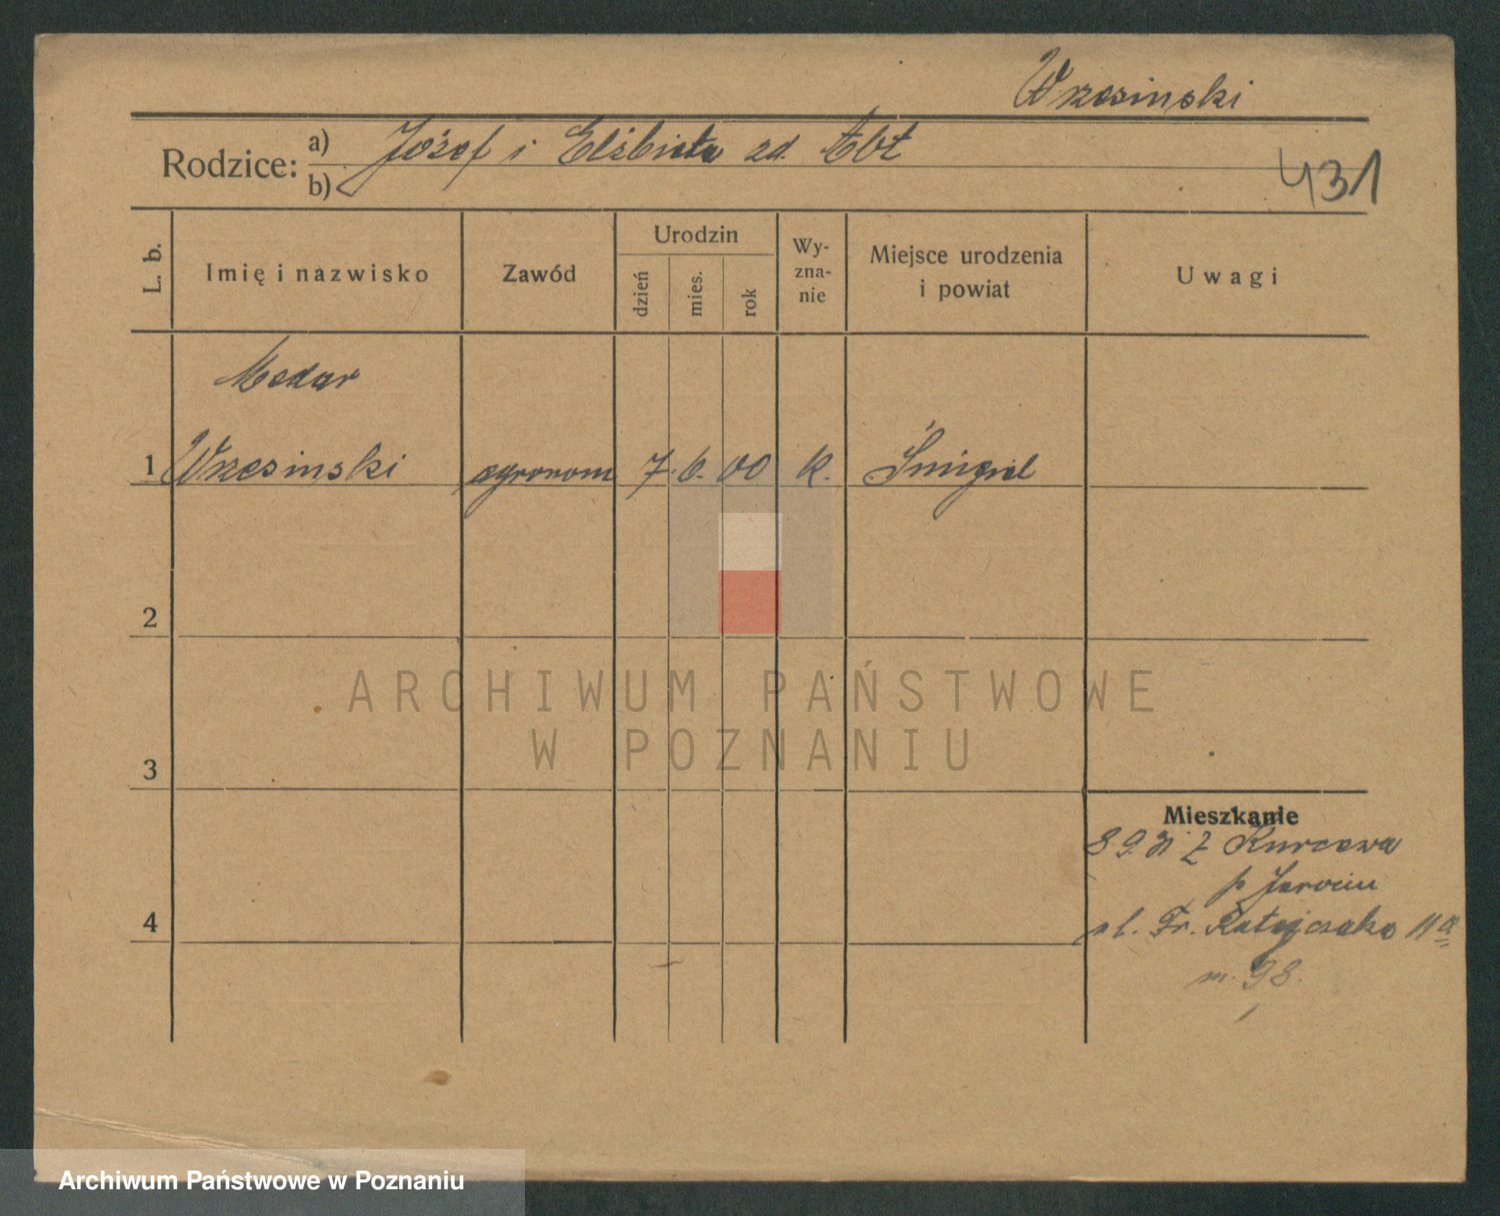 Wrzesinski
Rodzice: a) Józef i Elżbieta zd. Abt
b)
431
L. b.
Imię i nazwisko
Zawód
Urodzin
dzień
mies.
rok
Wy-
zna-
nie
Miejsce urodzenia
i powiat
Uwagi
Medar
1 Wrzesinski agronom 7. 6. 00 k. Śmigiel
2
ARCHIWUM PAŃSTWOWE
W POZNANIU
3
Mieszkanie
8 9. 31 z Kurcewa
p Jarocin
ul. Fr. Ratajczaka 11a
4
m. 98.
Archiwum Państwowe w Poznaniu